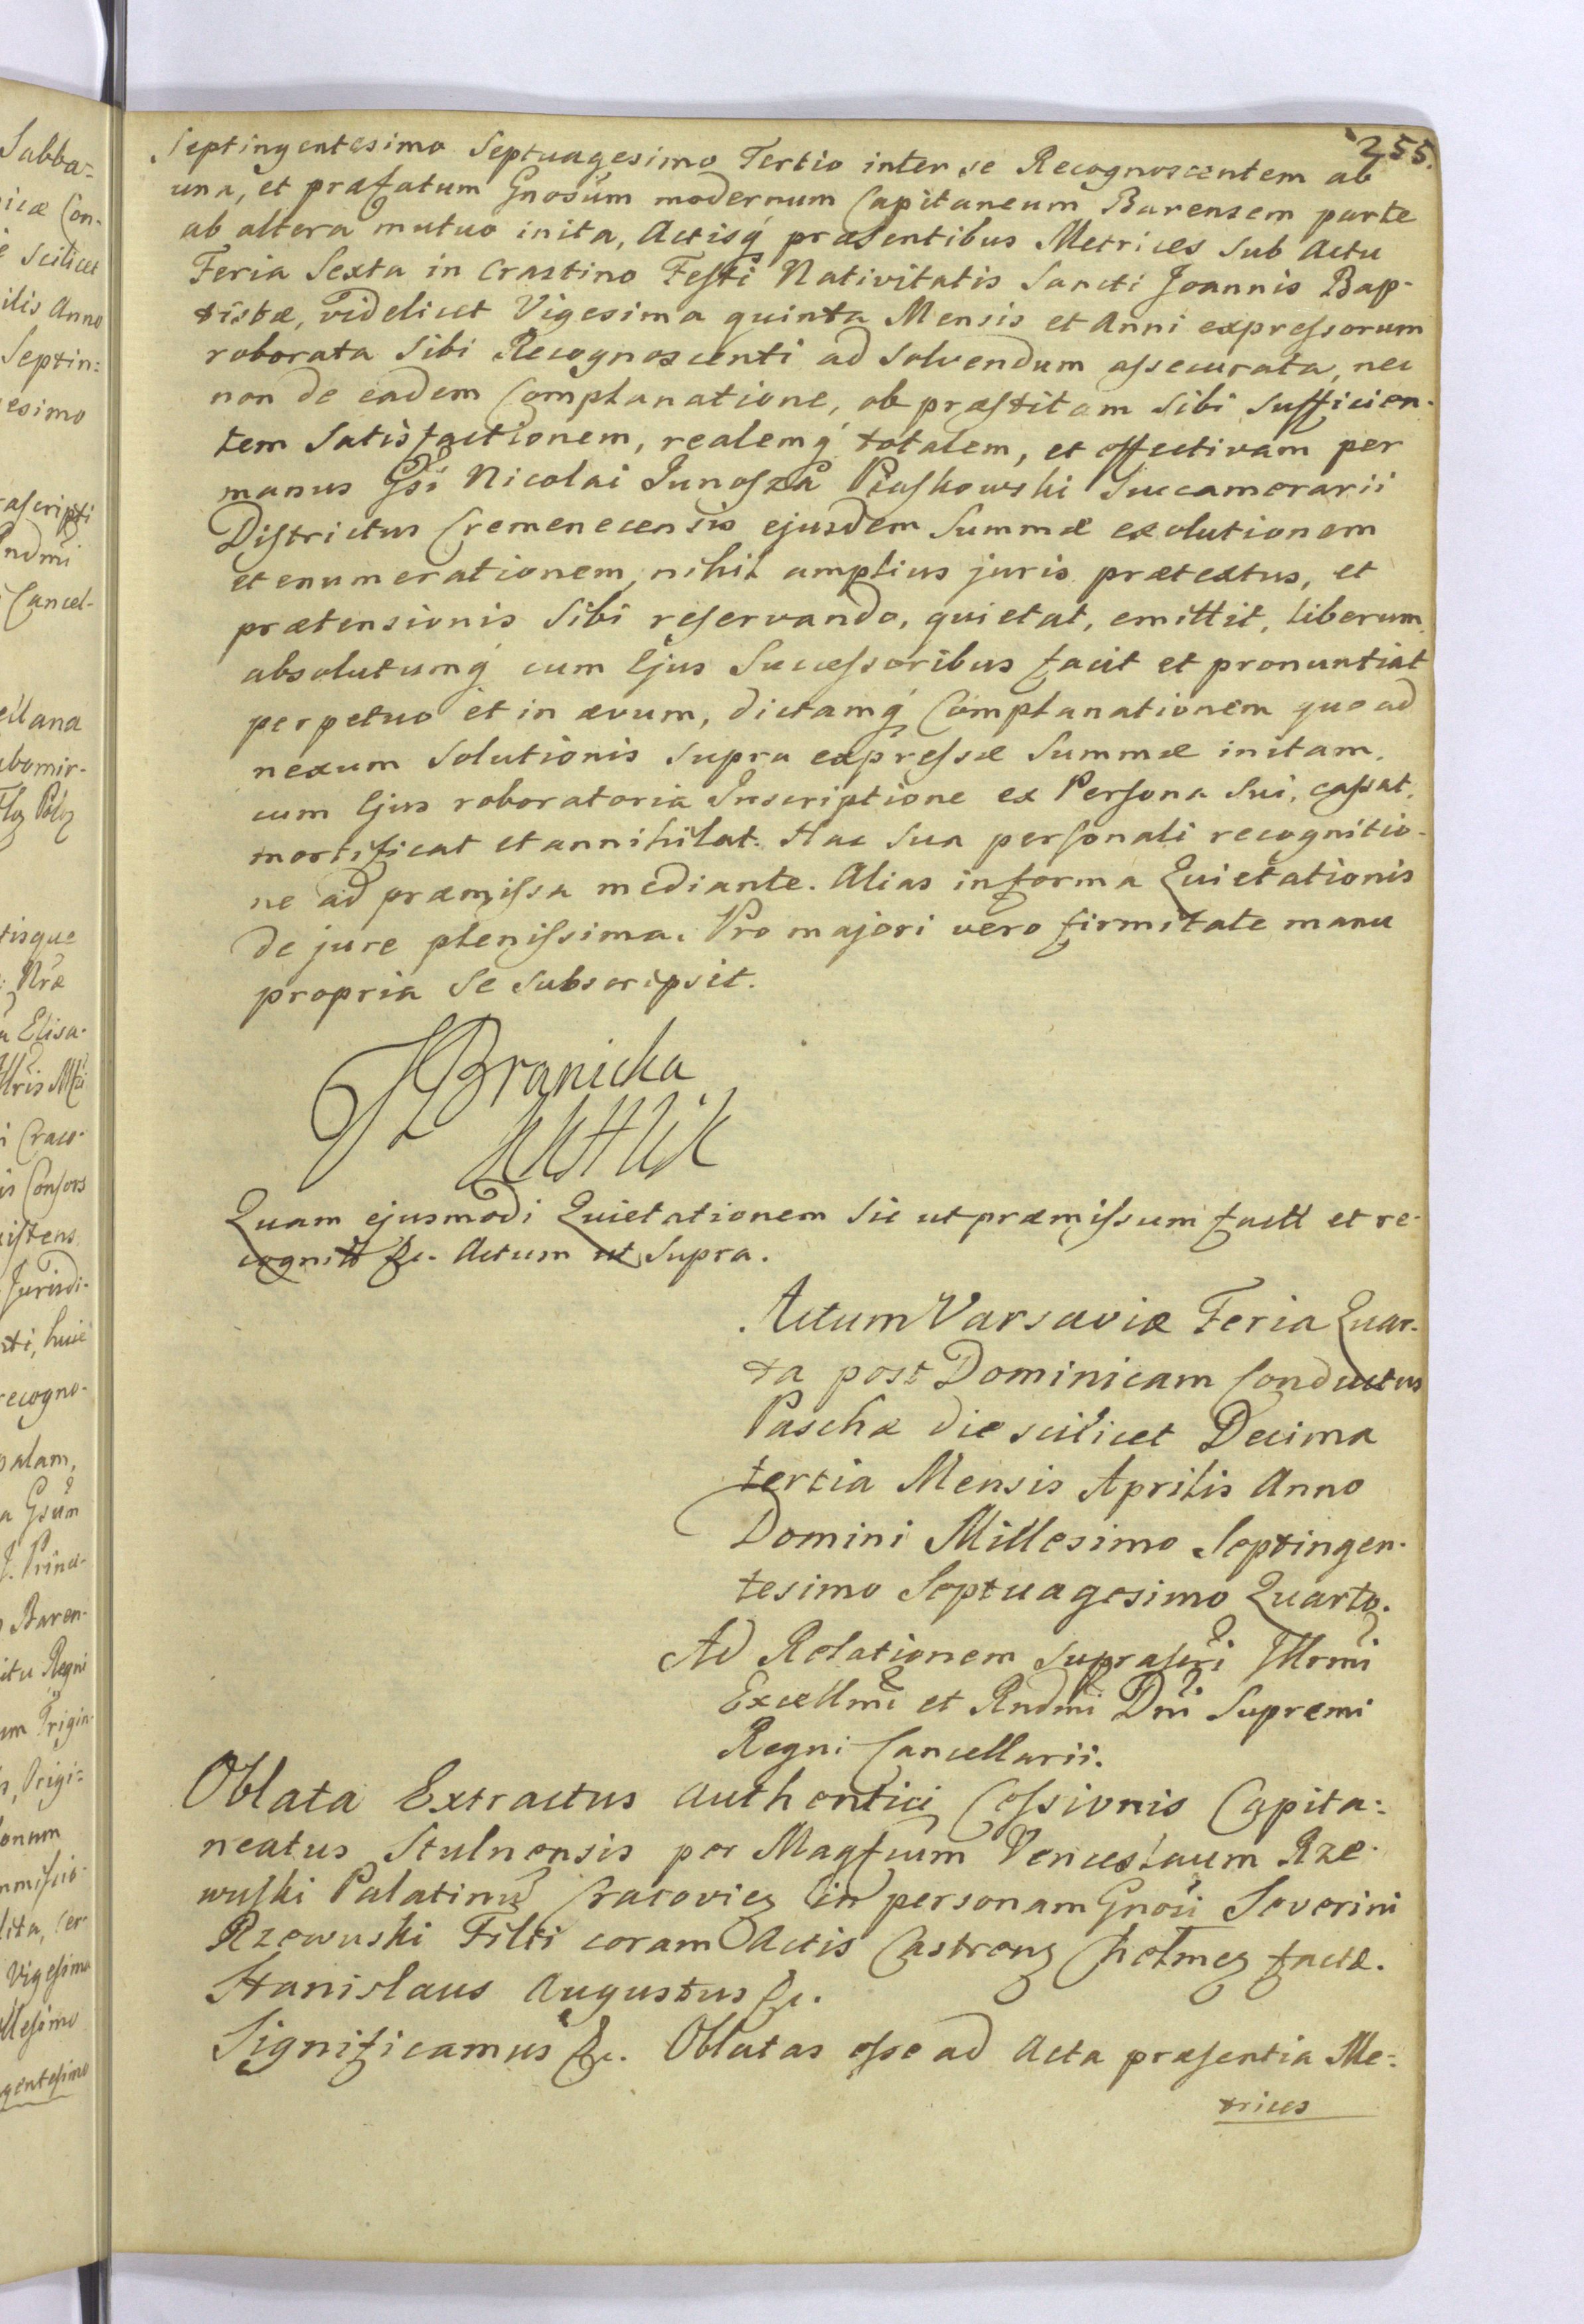 255.
Septingentesimo Septuagesimo Tertio inter se Recognoscentem ab
una, et præfatum Gnosum modernum Capitaneum Barensem parte
ab altera mutuo inita, Actisq́ præsentibus Metrices sub Actu
Feria Sexta in Crastino Festi Nativitatis Sancti Joannis Bap-
tistæ, videlicet Vigesima quinta Mensis et Anni expressorum
roborata sibi Recognoscenti ad solvendum assecurata, nec
non de eadem Complanatione, ob præstitam sibi sufficien-
tem satisfactionem, realemq́ totalem, et effectivam per
manus Gsi Nicolai Junosza Piaskowski Succamerarii
Districtus Cremenecensis ejusdem Summæ exolutionem
et enumerationem, nihil amplius juris prætextus, et
prætensionis sibi reservando, quietat, emittit, liberum
absolutumq́ cum Ejus Successoribus facit et pronuntiat
perpetuo et in ævum, dictamq́ Complanationem quoad
nexum solutionis supra expressæ Summæ initam,
cum Ejus roboratoria Inscriptione ex Persona Sui, cassat,
mortificat et annihilat. Hac sua personali recognitio-
ne ad præmissa mediante. Alias in forma Quietationis
de jure plenissima. Pro majori vero firmitate manu
propria se subscripsit.
Branicka
Quam ejusmodi Quietationem sic ut præmissum factt et re-
cognitt &c. Actum ut supra.
Actum Varsaviæ Feria Quar-
ta post Dominicam Conductus
Paschæ die scilicet Decima
tertia Mensis Aprilis Anno
Domini Millesimo Septingen-
tesimo Septuagesimo Quarto.
Ad Relationem suprascri Illrmi
Excellmi et Rndmi Dni Supremi
Regni Cancellarii.
Oblata Extractus authentici Cessionis Capita=
neatus Stulnensis per Magfcum Venceslaum Rze-
wuski Palatinum Cracovien in personam Gnosi Severini
Rzewuski Filii coram Actis Castren Chelmen factæ.
Stanislaus Augustus &c.
Significamus &c. Oblatas esse ad Acta præsentia Me=
trices